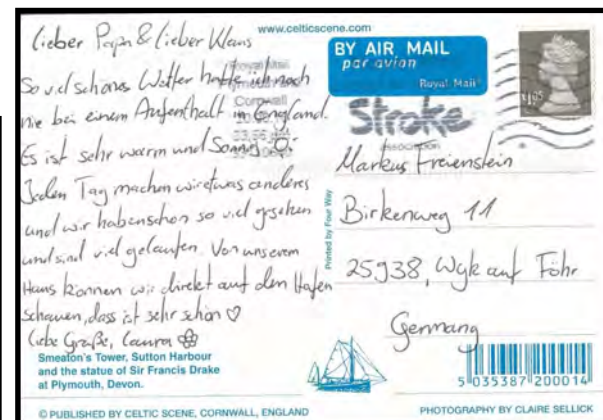 www.celticscene.com
Lieber Papa & Lieber Klaus
So viel schönes Wetter hatte ich noch
nie bei einem Aufenthalt in England.
Es ist sehr warm und Sonnig
Jeden Tag machen wir etwas anderes
und wir haben schon so viel gesehen
und sind viel gelaufen. Von unserem
Haus können wir direkt auf den Hafen
schauen, dass ist sehr schön ♡
Liebe Grüße, Laura
Smeaton's Tower, Sutton Harbour
and the statue of Sir Francis Drake
at Plymouth, Devon.
© PUBLISHED BY CELTIC SCENE, CORNWALL, ENGLAND
Printed by Four Way
BY AIR MAIL
par avion
Royal Mail
Royal Mail
Cornwall
Stroke
Association
Markus Freienstein
Birkenweg 11
25938, Wyk auf Föhr
Germany
5 035387 200014
PHOTOGRAPHY BY CLAIRE SELLICK